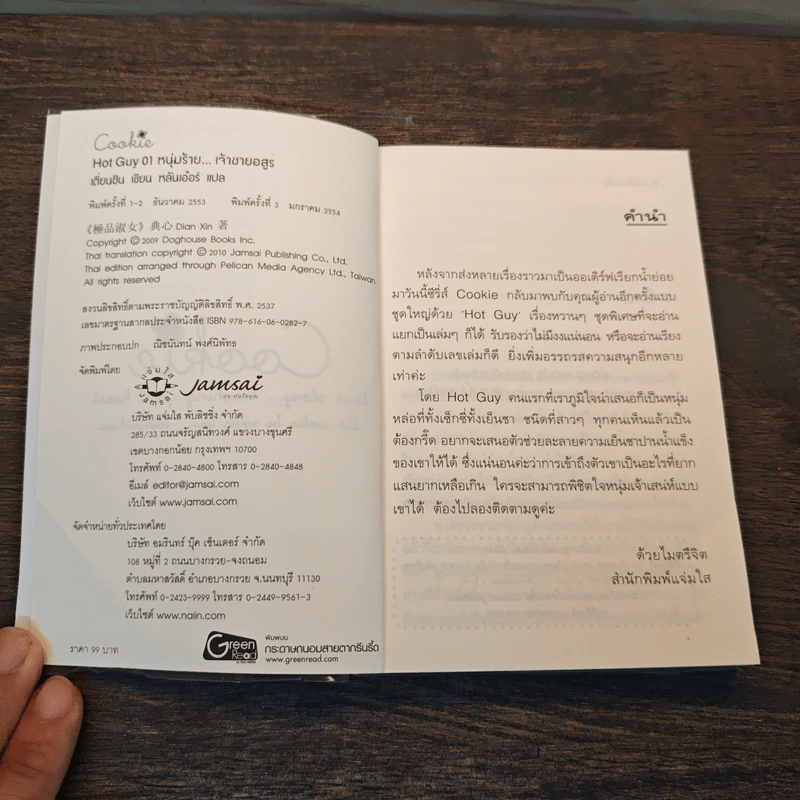 Cookie
Hot Guy 01 หนุ่มร้าย... เจ้าชายอสูร
เตี่ยนซิน เขียน หลันเอ๋อร์ แปล
พิมพ์ครั้งที่ 1-2 ธันวาคม 2553 พิมพ์ครั้งที่ 3 มกราคม 2554
《極品淑女》典心 Dian Xin 著
Copyright © 2009 Doghouse Books Inc.
Thai translation copyright © 2010 Jamsai Publishing Co., Ltd.
Thai edition arranged through Pelican Media Agency Ltd., Taiwan
All rights reserved
สงวนลิขสิทธิ์ตามพระราชบัญญัติลิขสิทธิ์ พ.ศ. 2537
เลขมาตรฐานสากลประจำหนังสือ ISBN 978-616-06-0282-7
ภาพประกอบปก ณิชนันทน์ พงศ์นิพัทธ
จัดพิมพ์โดย
แจ่มใส
JAMSAI
Jamsai
บริษัท แจ่มใส พับลิชชิ่ง จำกัด
285/33 ถนนจรัญสนิทวงศ์ แขวงบางขุนศรี
เขตบางกอกน้อย กรุงเทพฯ 10700
โทรศัพท์ 0-2840-4800 โทรสาร 0-2840-4848
อีเมล์ editor@jamsai.com
เว็บไซต์ www.jamsai.com
จัดจำหน่ายทั่วประเทศโดย
บริษัท อมรินทร์ บุ๊ค เซ็นเตอร์ จำกัด
108 หมู่ที่ 2 ถนนบางกรวย-จงถนอม
ตำบลมหาสวัสดิ์ อำเภอบางกรวย จ.นนทบุรี 11130
โทรศัพท์ 0-2423-9999 โทรสาร 0-2449-9561-3
เว็บไซต์ www.naiin.com
ราคา 99 บาท
Green Read
พิมพ์บน
กระดาษถนอมสายตากรีนรี้ด
www.greenread.com
คำนำ
หลังจากส่งหลายเรื่องราวมาเป็นออเดิร์ฟเรียกน้ำย่อย
มาวันนี้ซีรี่ส์ Cookie กลับมาพบกับคุณผู้อ่านอีกครั้งแบบ
ชุดใหญ่ด้วย 'Hot Guy' เรื่องหวานๆ ชุดพิเศษที่จะอ่าน
แยกเป็นเล่มๆ ก็ได้ รับรองว่าไม่มีงงแน่นอน หรือจะอ่านเรียง
ตามลำดับเลขเล่มก็ดี ยิ่งเพิ่มอรรถรสความสนุกอีกหลาย
เท่าค่ะ
โดย Hot Guy คนแรกที่เราภูมิใจนำเสนอก็เป็นหนุ่ม
หล่อที่ทั้งเซ็กซี่ทั้งเย็นชา ชนิดที่สาวๆ ทุกคนเห็นแล้วเป็น
ต้องกรี๊ด อยากจะเสนอตัวช่วยละลายความเย็นชาปานน้ำแข็ง
ของเขาให้ได้ ซึ่งแน่นอนค่ะว่าการเข้าถึงตัวเขาเป็นอะไรที่ยาก
แสนยากเหลือเกิน ใครจะสามารถพิชิตใจหนุ่มเจ้าเสน่ห์แบบ
เขาได้ ต้องไปลองติดตามดูค่ะ
ด้วยไมตรีจิต
สำนักพิมพ์แจ่มใส